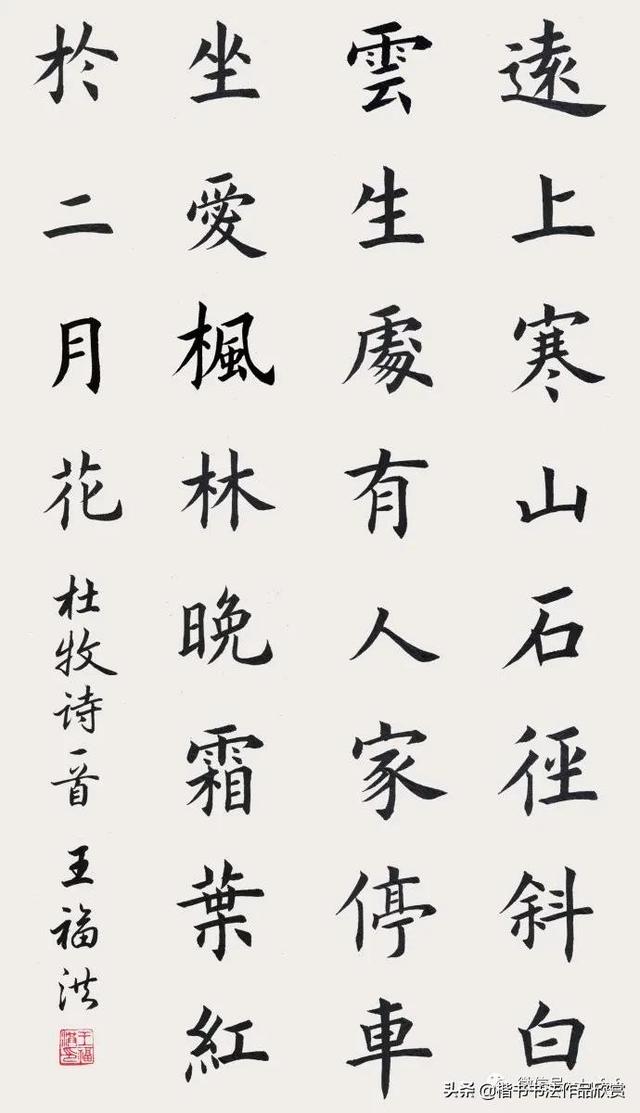 遠上寒山石徑斜白
雲生處有人家停車
坐愛楓林晚霜葉紅
於二月花 杜牧诗一首 王福洪
王福洪印
微信号
头条 @楷书书法作品欣赏